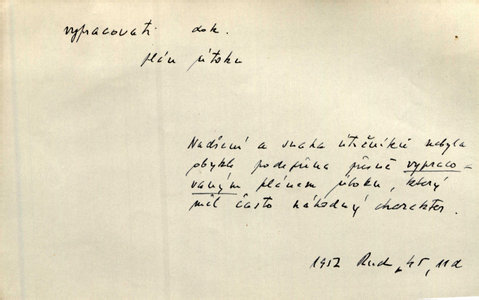 vypracovati dok.
plán útoku
Nadšení a snaha útočníků nebyla
obykle podepřena přesně vypraco-
vaným plánem útoku, který
měl často náhodný charakter.
1952 Rud. 45, 11d